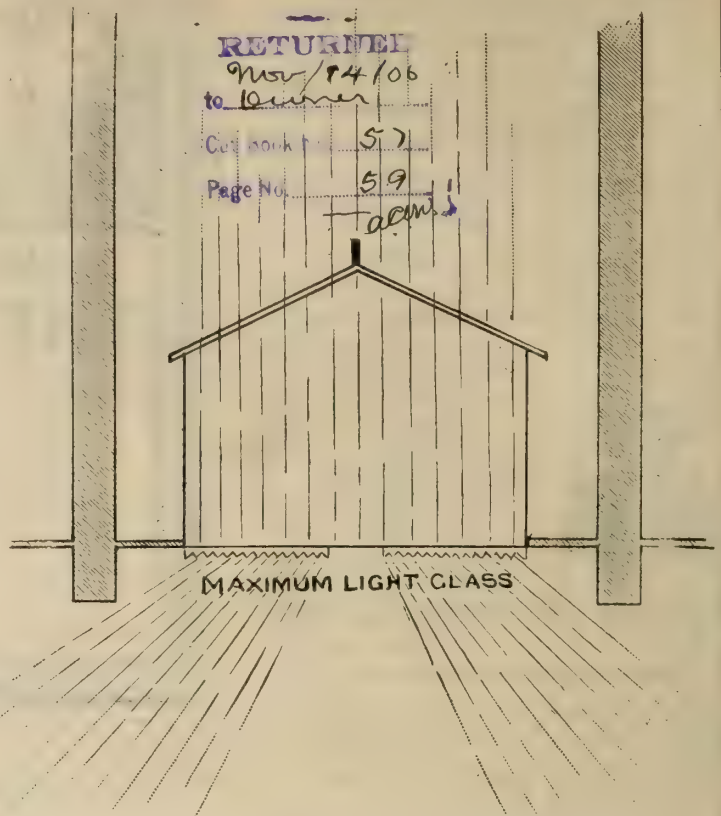 RETURNED
Nov/14/06
to Owner
Cut book No. 57
Page No. 59
MAXIMUM LIGHT GLASS